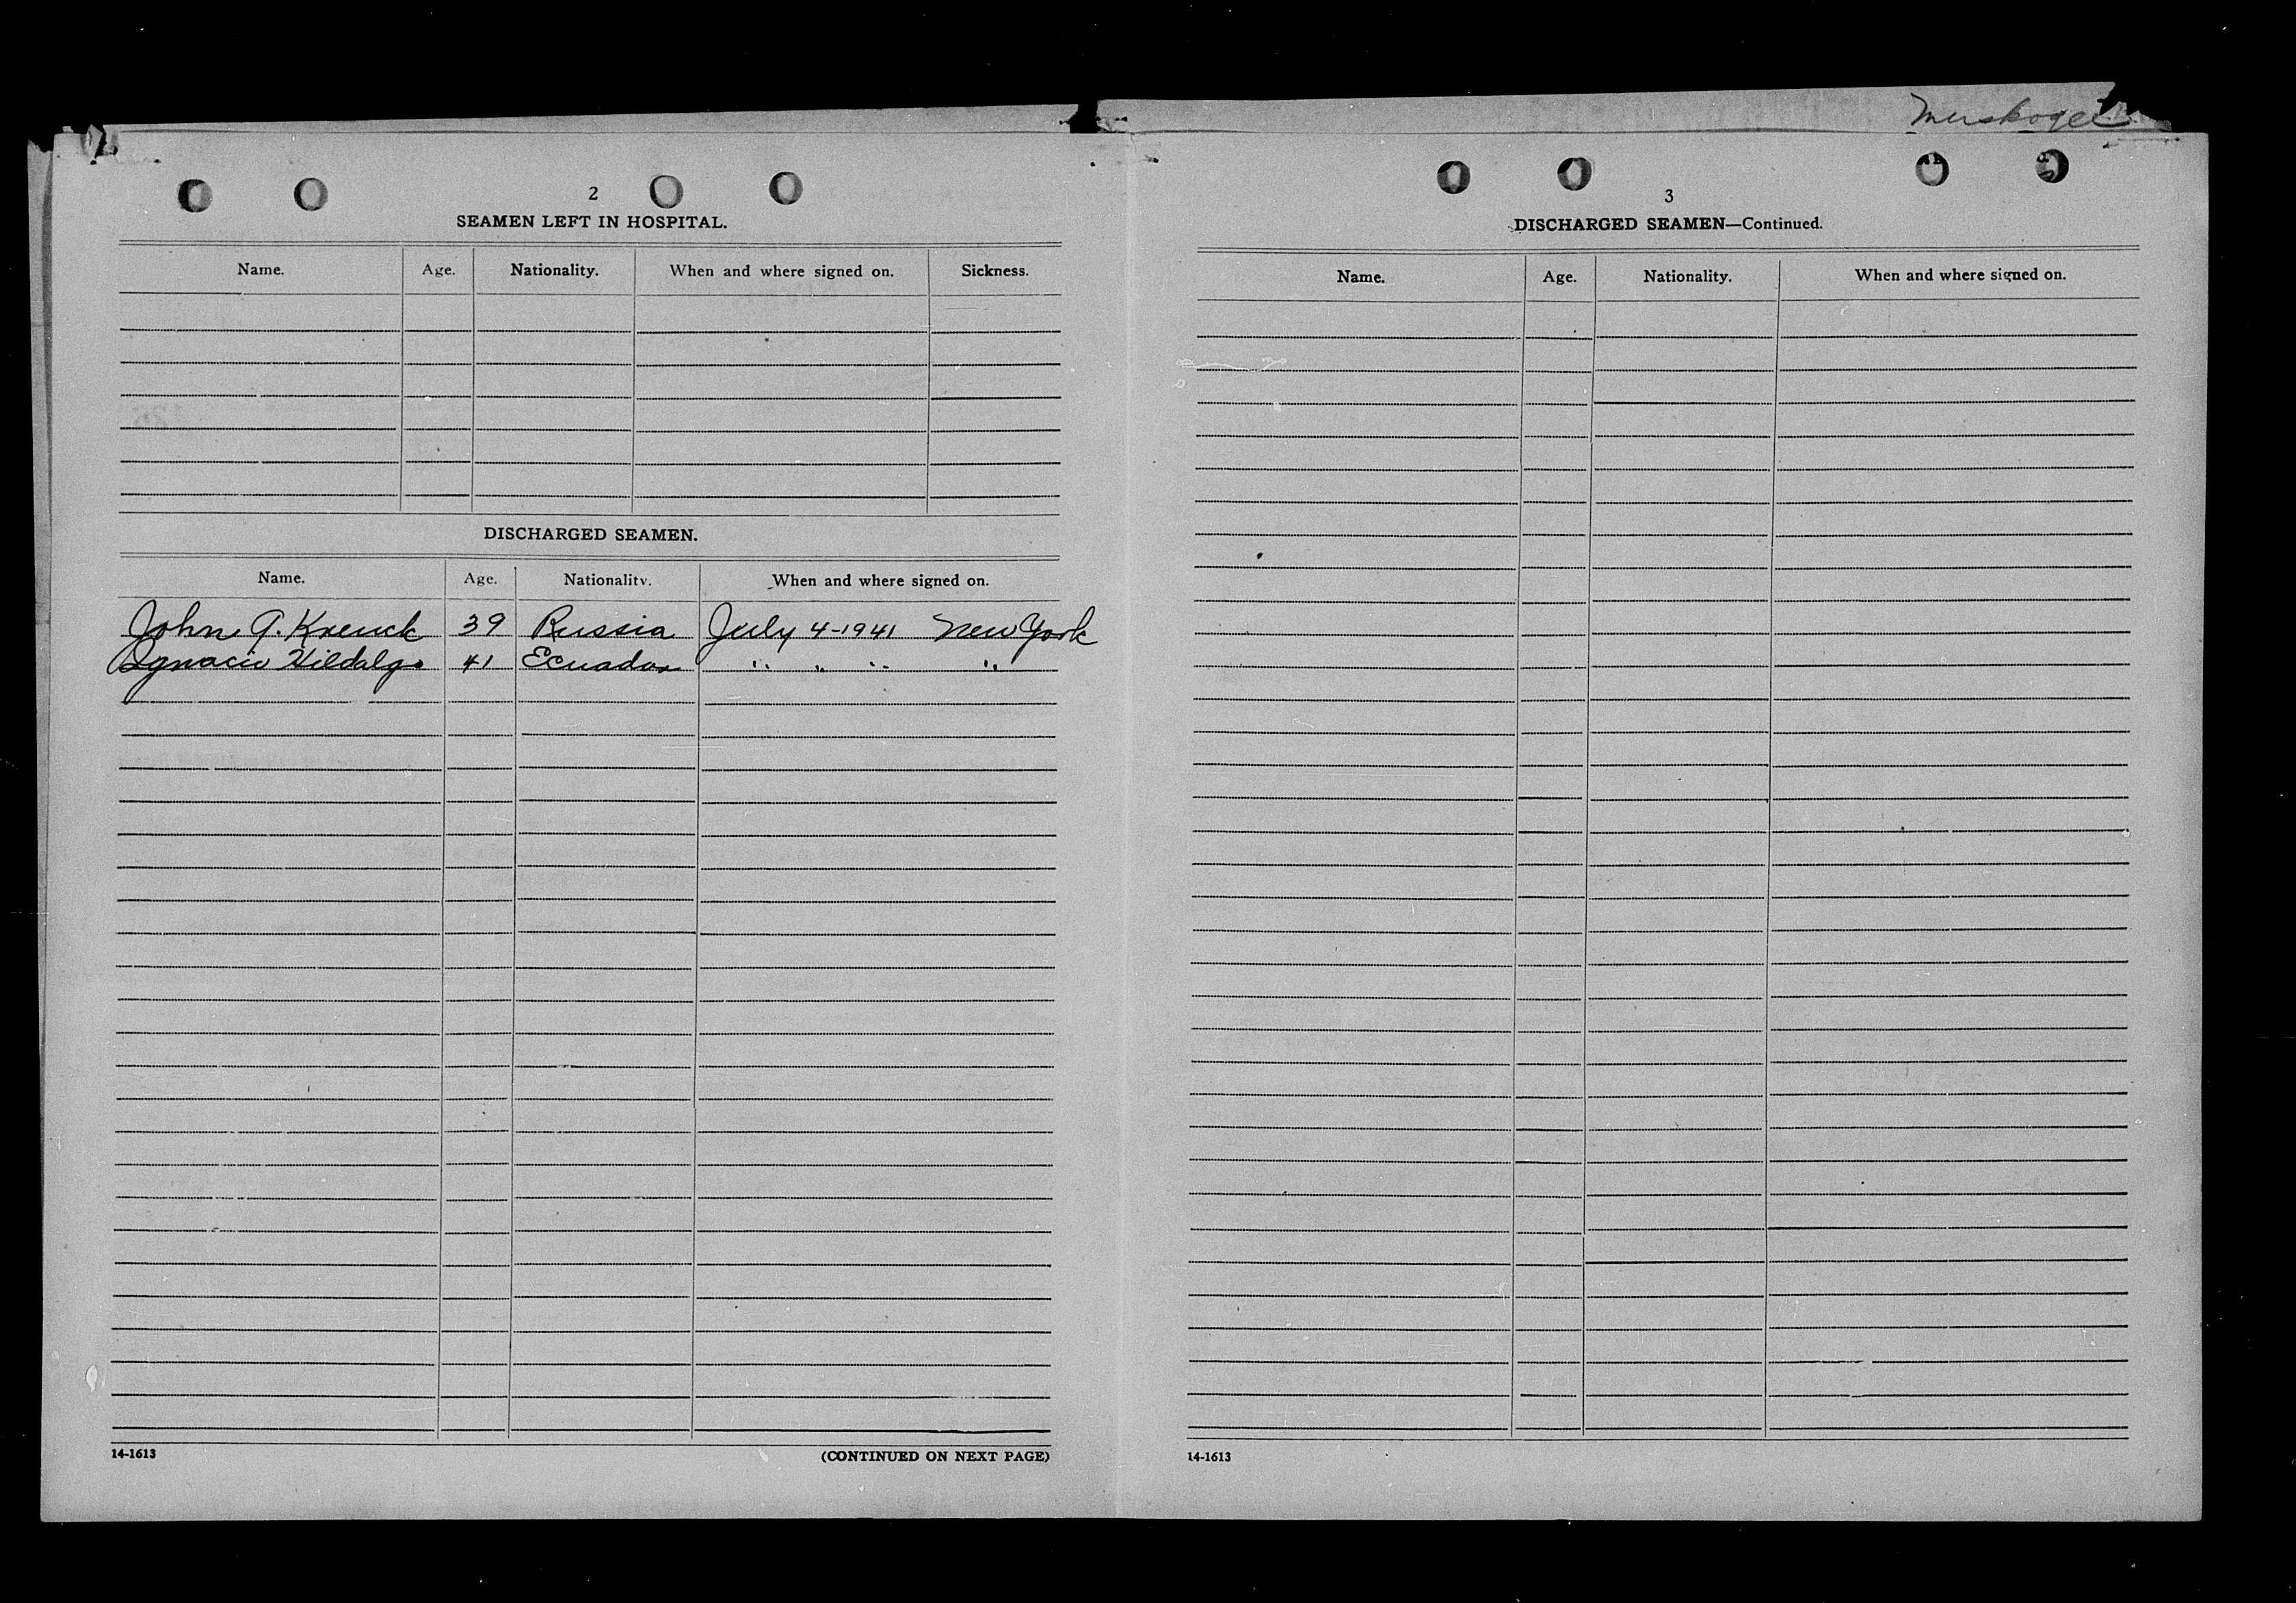 Muskogee
2
SEAMEN LEFT IN HOSPITAL.
Name. Age. Nationality. When and where signed on. Sickness.
DISCHARGED SEAMEN.
Name. Age. Nationality. When and where signed on.
John G. Krenck 39 Russia July 4-1941 New York
Ignacio Hildalgo 41 Ecuador " " " "
14-1613 (CONTINUED ON NEXT PAGE)
3
DISCHARGED SEAMEN—Continued.
Name. Age. Nationality. When and where signed on.
14-1613